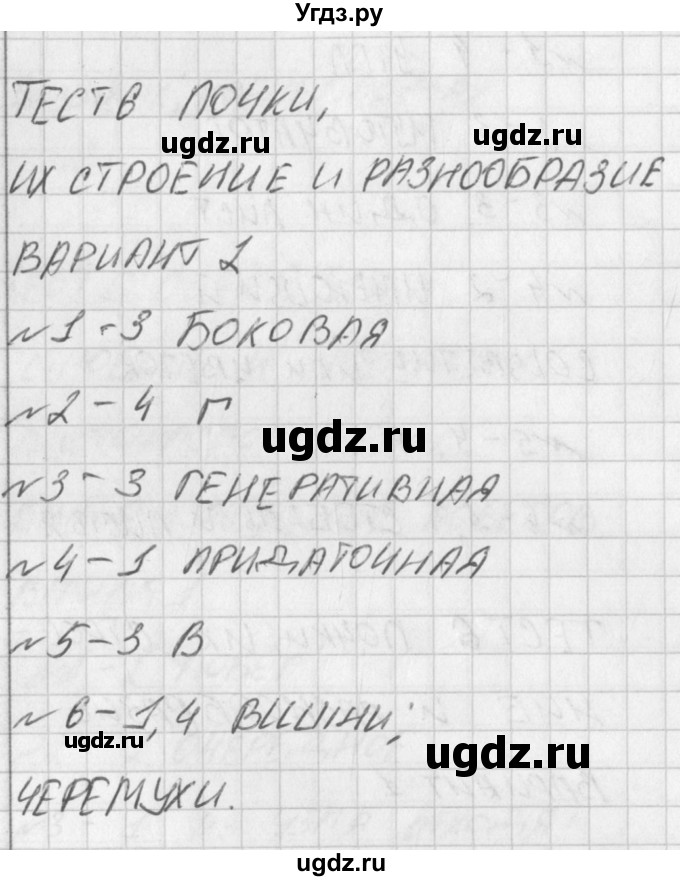 Угдз.ру
ТЕСТ 6 ПОЧКИ,
ugdz.ru ugdz.ru
ИХ СТРОЕНИЕ И РАЗНООБРАЗИЕ
ВАРИАНТ 2
№1-3 БОКОВАЯ
№2-4 Г
ugdz.ru
№3-3 ГЕНЕРАТИВНАЯ
№4-1 ПРИДАТОЧНАЯ
№5-3 В
№6-1,4 ВИШНИ;
ugdz.ru ugdz.ru
ЧЕРЕМУХИ.
ugdz.ru